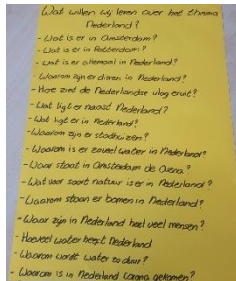 Wat willen wij leren over het thema
Nederland?
- Wat is er in Amsterdam?
- Wat is er in Rotterdam?
- Wat is er allemaal in Nederland?
- Waarom zijn er dieren in Nederland?
- Hoe ziet de Nederlandse vlag eruit?
- Wat ligt er naast Nederland?
- Wat ligt er in Nederland?
- Waarom zijn er stadhuizen?
- Waarom is er zoveel water in Nederland?
- Waar staat in Amsterdam de Arena?
- Wat voor soort natuur is er in Nederland?
- Waarom staan er bomen in Nederland?
- Waar zijn in Nederland heel veel mensen?
- Hoeveel water heeft Nederland
- Waarom wordt water zo duur?
- Waarom is in Nederland Corona gekomen?